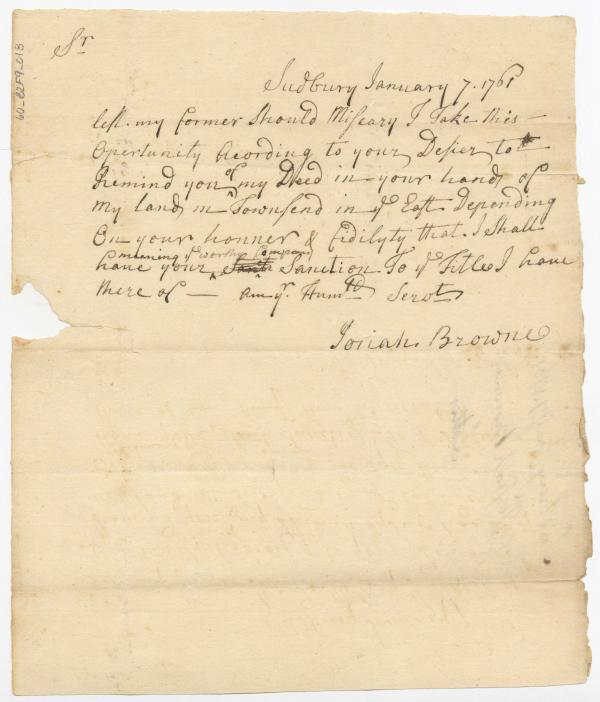 60_82F9_018
Sr
Sudbury January 7. 1761
lest my former Should Miscary I Take this
Opertunity Acording to your Desier to
Remind you of my Deed in your hands of
my lands in Townsend in ye East Depending
On your honner & fidilyty that I Shall
meaning ye worthy Company
have your Sanction To ye Title I have
there of — Am yr. Humd Servt
Josiah Browne